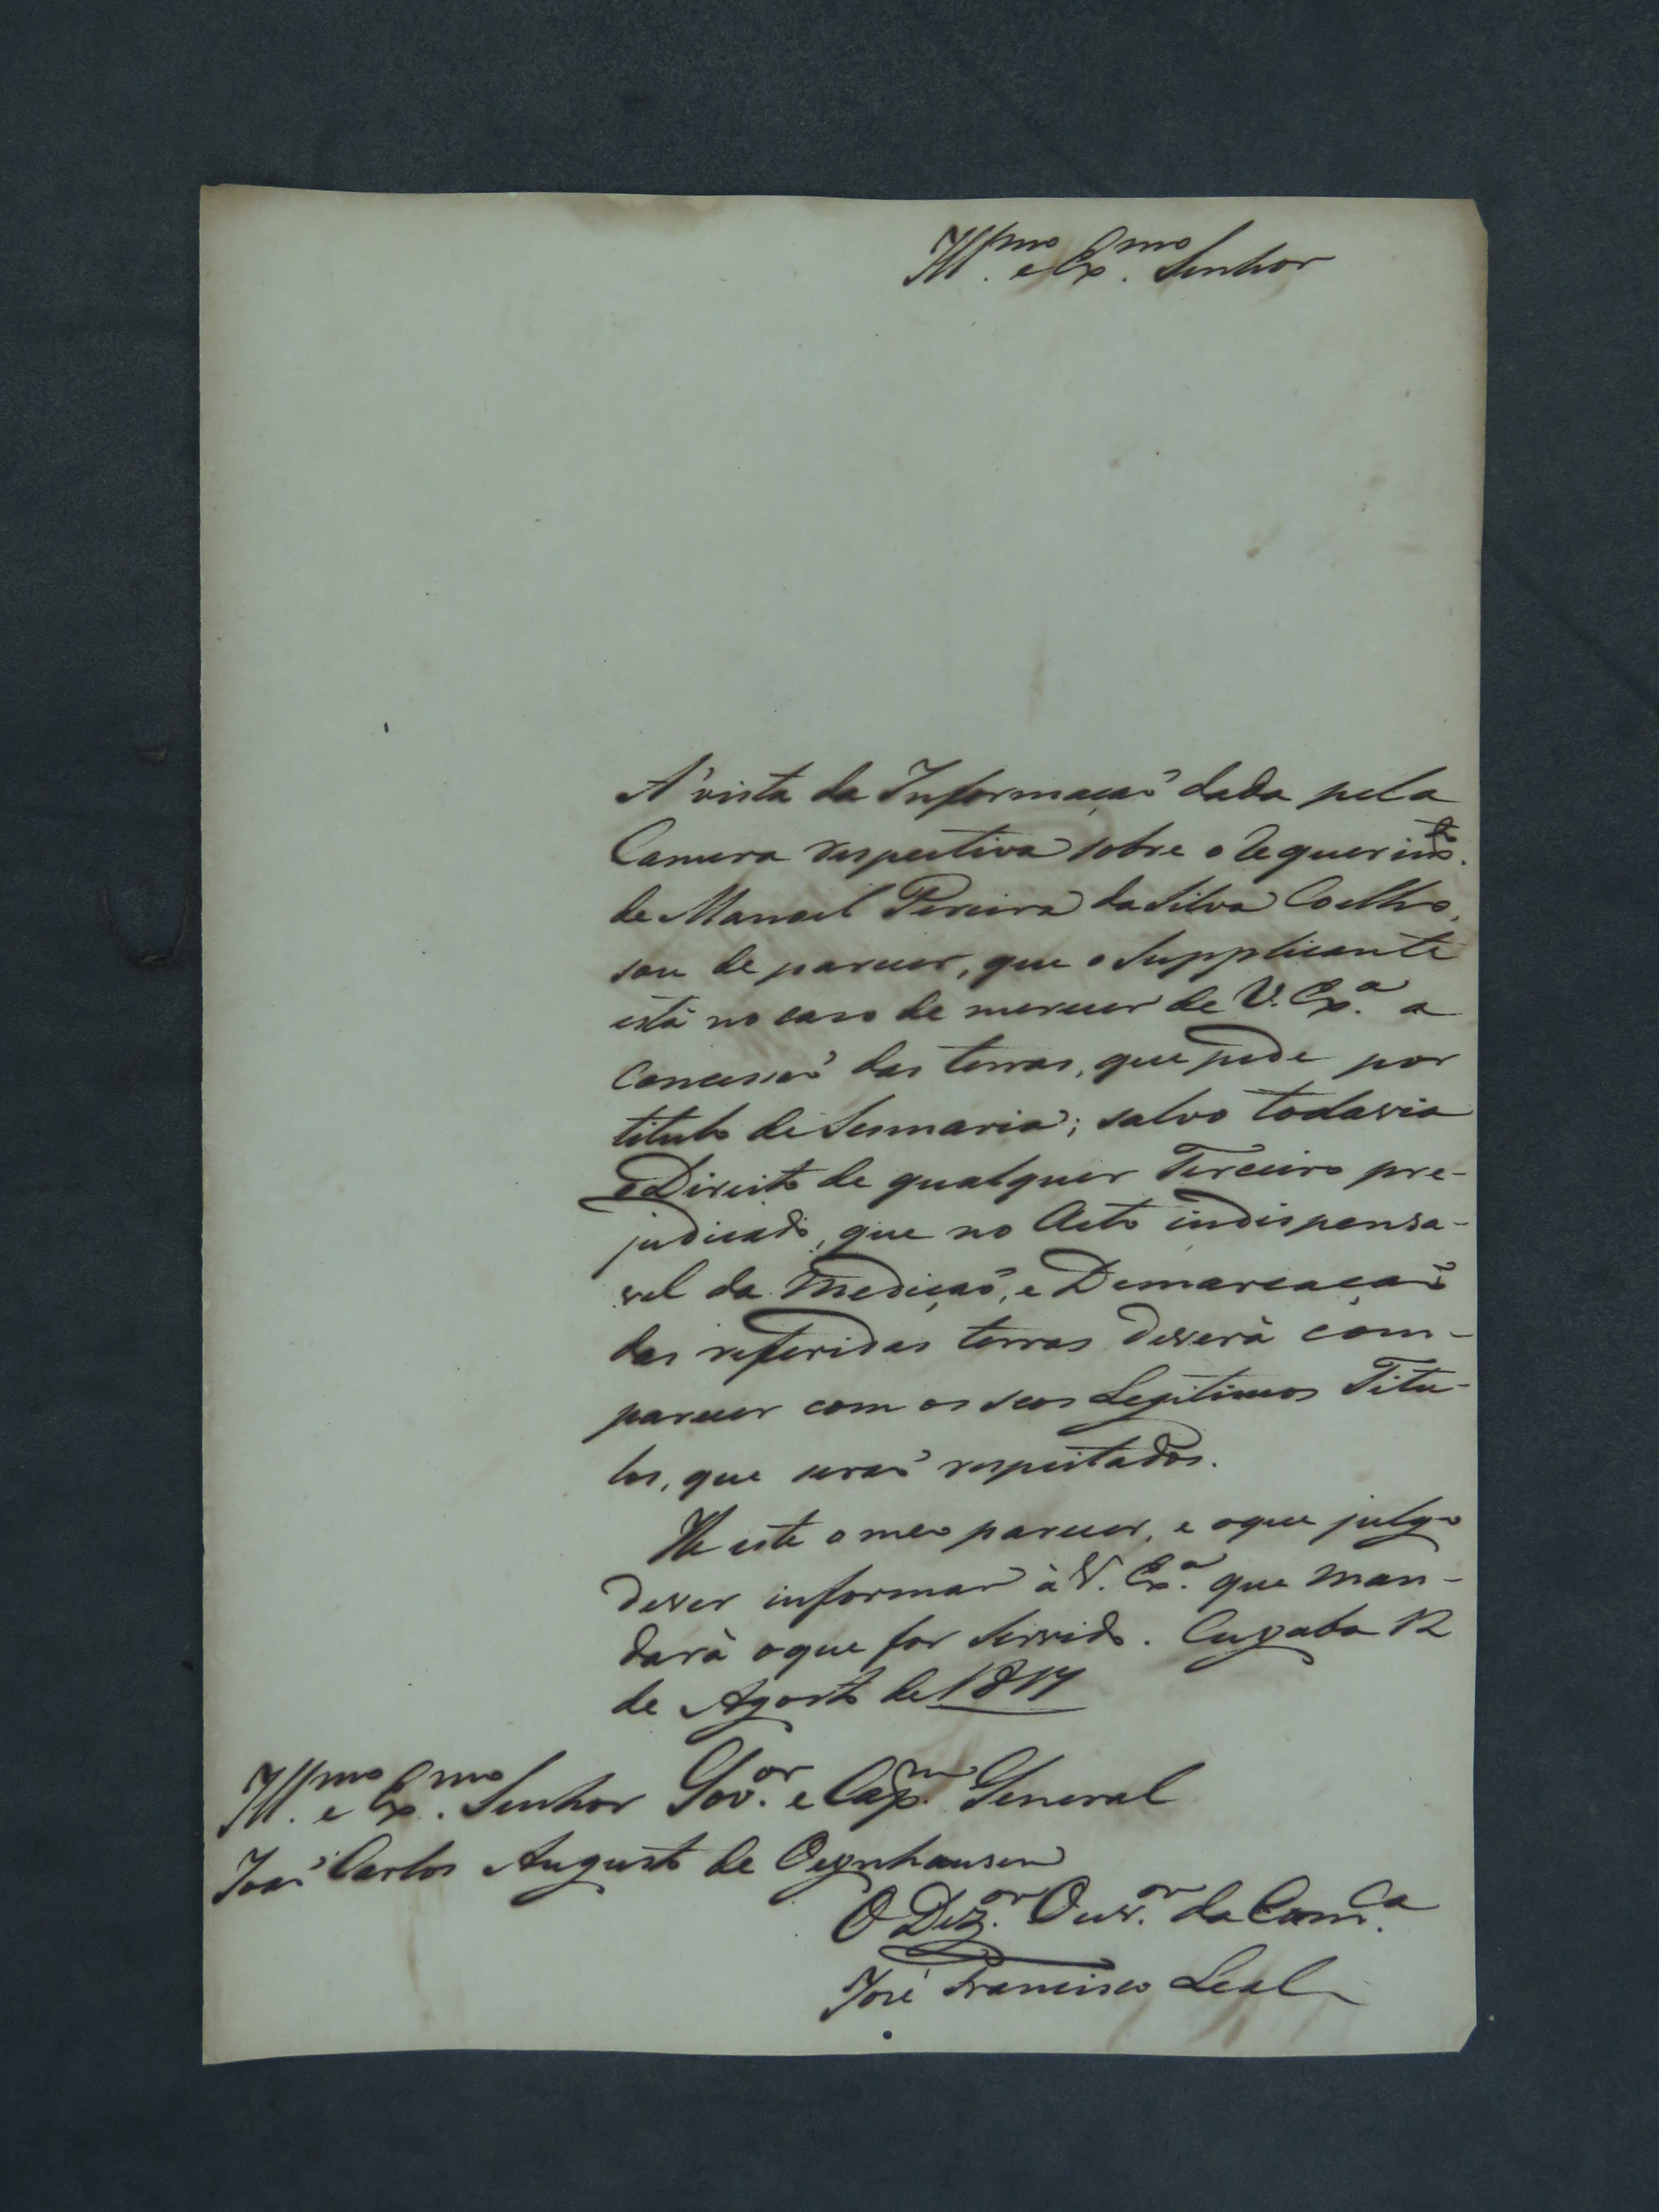 Ill.mo e Ex.mo Senhor
A' vista da Informaçaõ dada pela
Camera respectiva sobre o Requerim.to
de Manoel Pereira da Silva Coelho,
sou de parecer, que o Supplicante
está no caso de merecer de V. Ex.a a
Concessaõ das terras, que pede por
titulo de Sesmaria; salvo todavia
o Direito de qualquer Terceiro pre-
judicado, que no Acto indispensa-
vel da Mediçaõ, e Demarcaçaõ
das referidas terras deverà com-
parecer com os seos Legitimos Titu-
los, que seraõ respeitados.
He este o meo parecer, e o que julgo
dever informar à V. Ex.a que man-
darà o que for Servido. Cuyaba 12
de Agosto de 1817
Ill.mo e Ex.mo Senhor Gov.or e Cap.m General
Joaõ Carlos Augusto de Oeynhausen
O Dez.or Ouv.or da Com.ca
José Francisco Leal